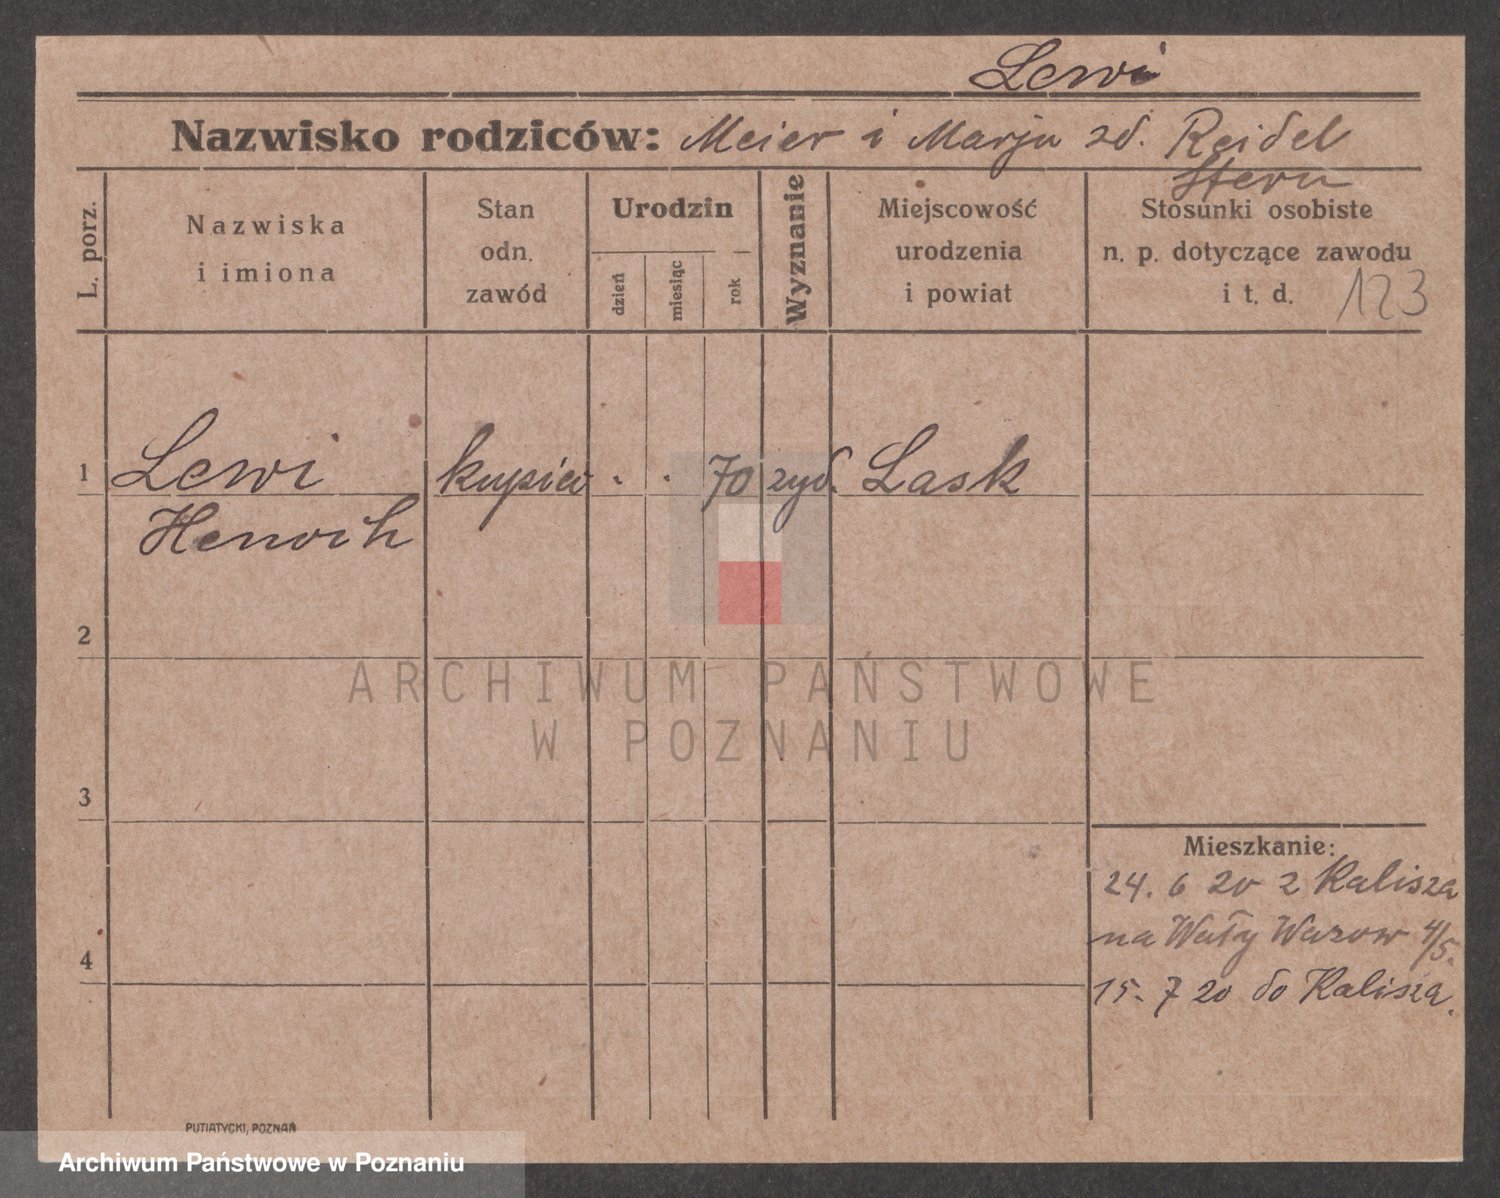 Lewi
Nazwisko rodziców: Meier i Marja zd. Reidel
Stern
L. porz.
Nazwiska
i imiona
Stan
odn.
zawód
Urodzin
dzień
miesiąc
rok
Wyznanie
Miejscowość
urodzenia
i powiat
Stosunki osobiste
n. p. dotyczące zawodu
i t. d.
123
1 Lewi kupiec . . 70 żyd. Lask
Henoch
2
3
4
Mieszkanie:
24. 6 20 z Kalisza
na Wały Wazow 4/5.
15. 7 20 do Kalisza.
PUTIATYCKI, POZNAŃ
ARCHIWUM PAŃSTWOWE
W POZNANIU
Archiwum Państwowe w Poznaniu